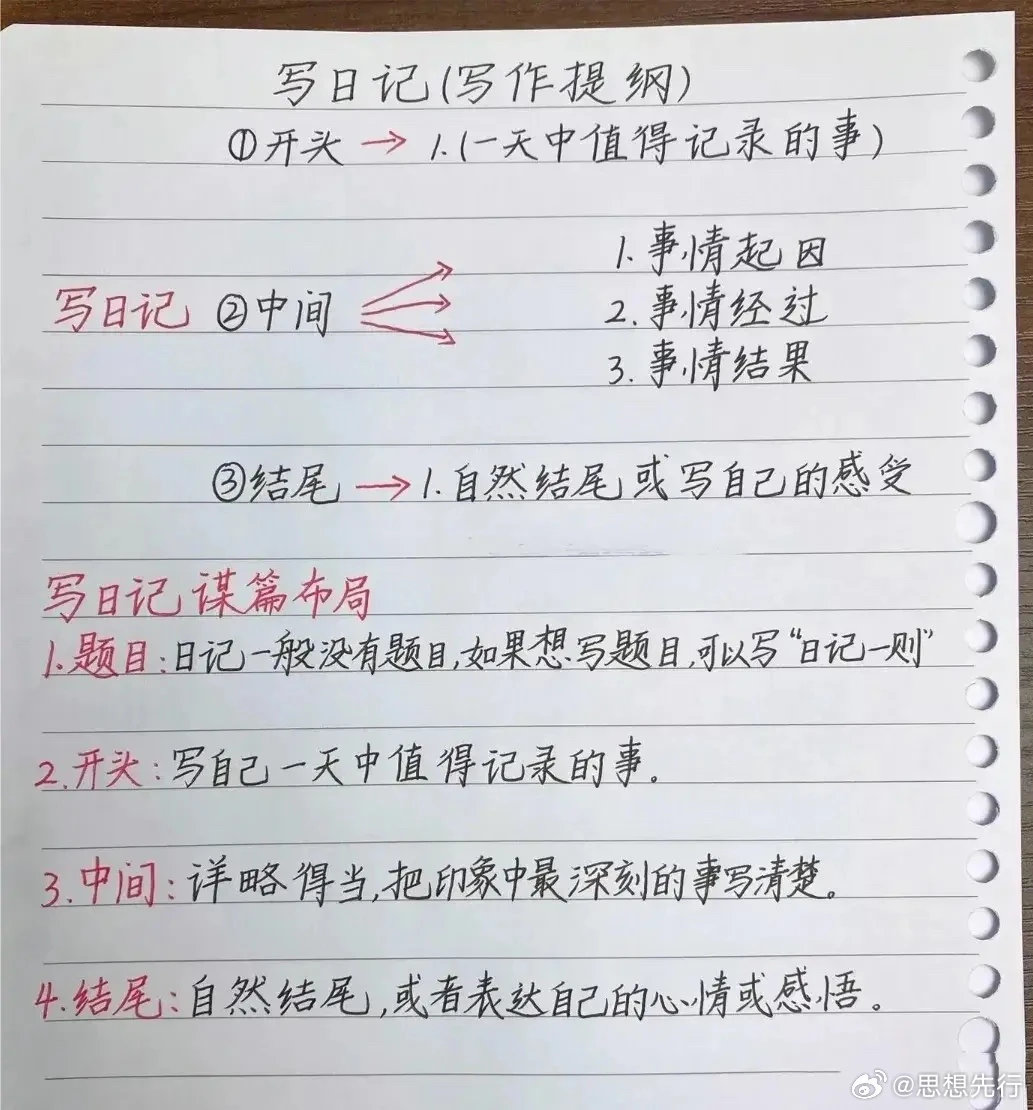 写日记(写作提纲)
①开头→1.(一天中值得记录的事)
1.事情起因
写日记 ②中间 2.事情经过
3.事情结果
③结尾→1.自然结尾或写自己的感受
写日记谋篇布局
1.题目:日记一般没有题目,如果想写题目,可以写“日记一则”
2.开头:写自己一天中值得记录的事。
3.中间:详略得当,把印象中最深刻的事写清楚。
4.结尾:自然结尾,或者表达自己的心情或感悟。
@思想先行